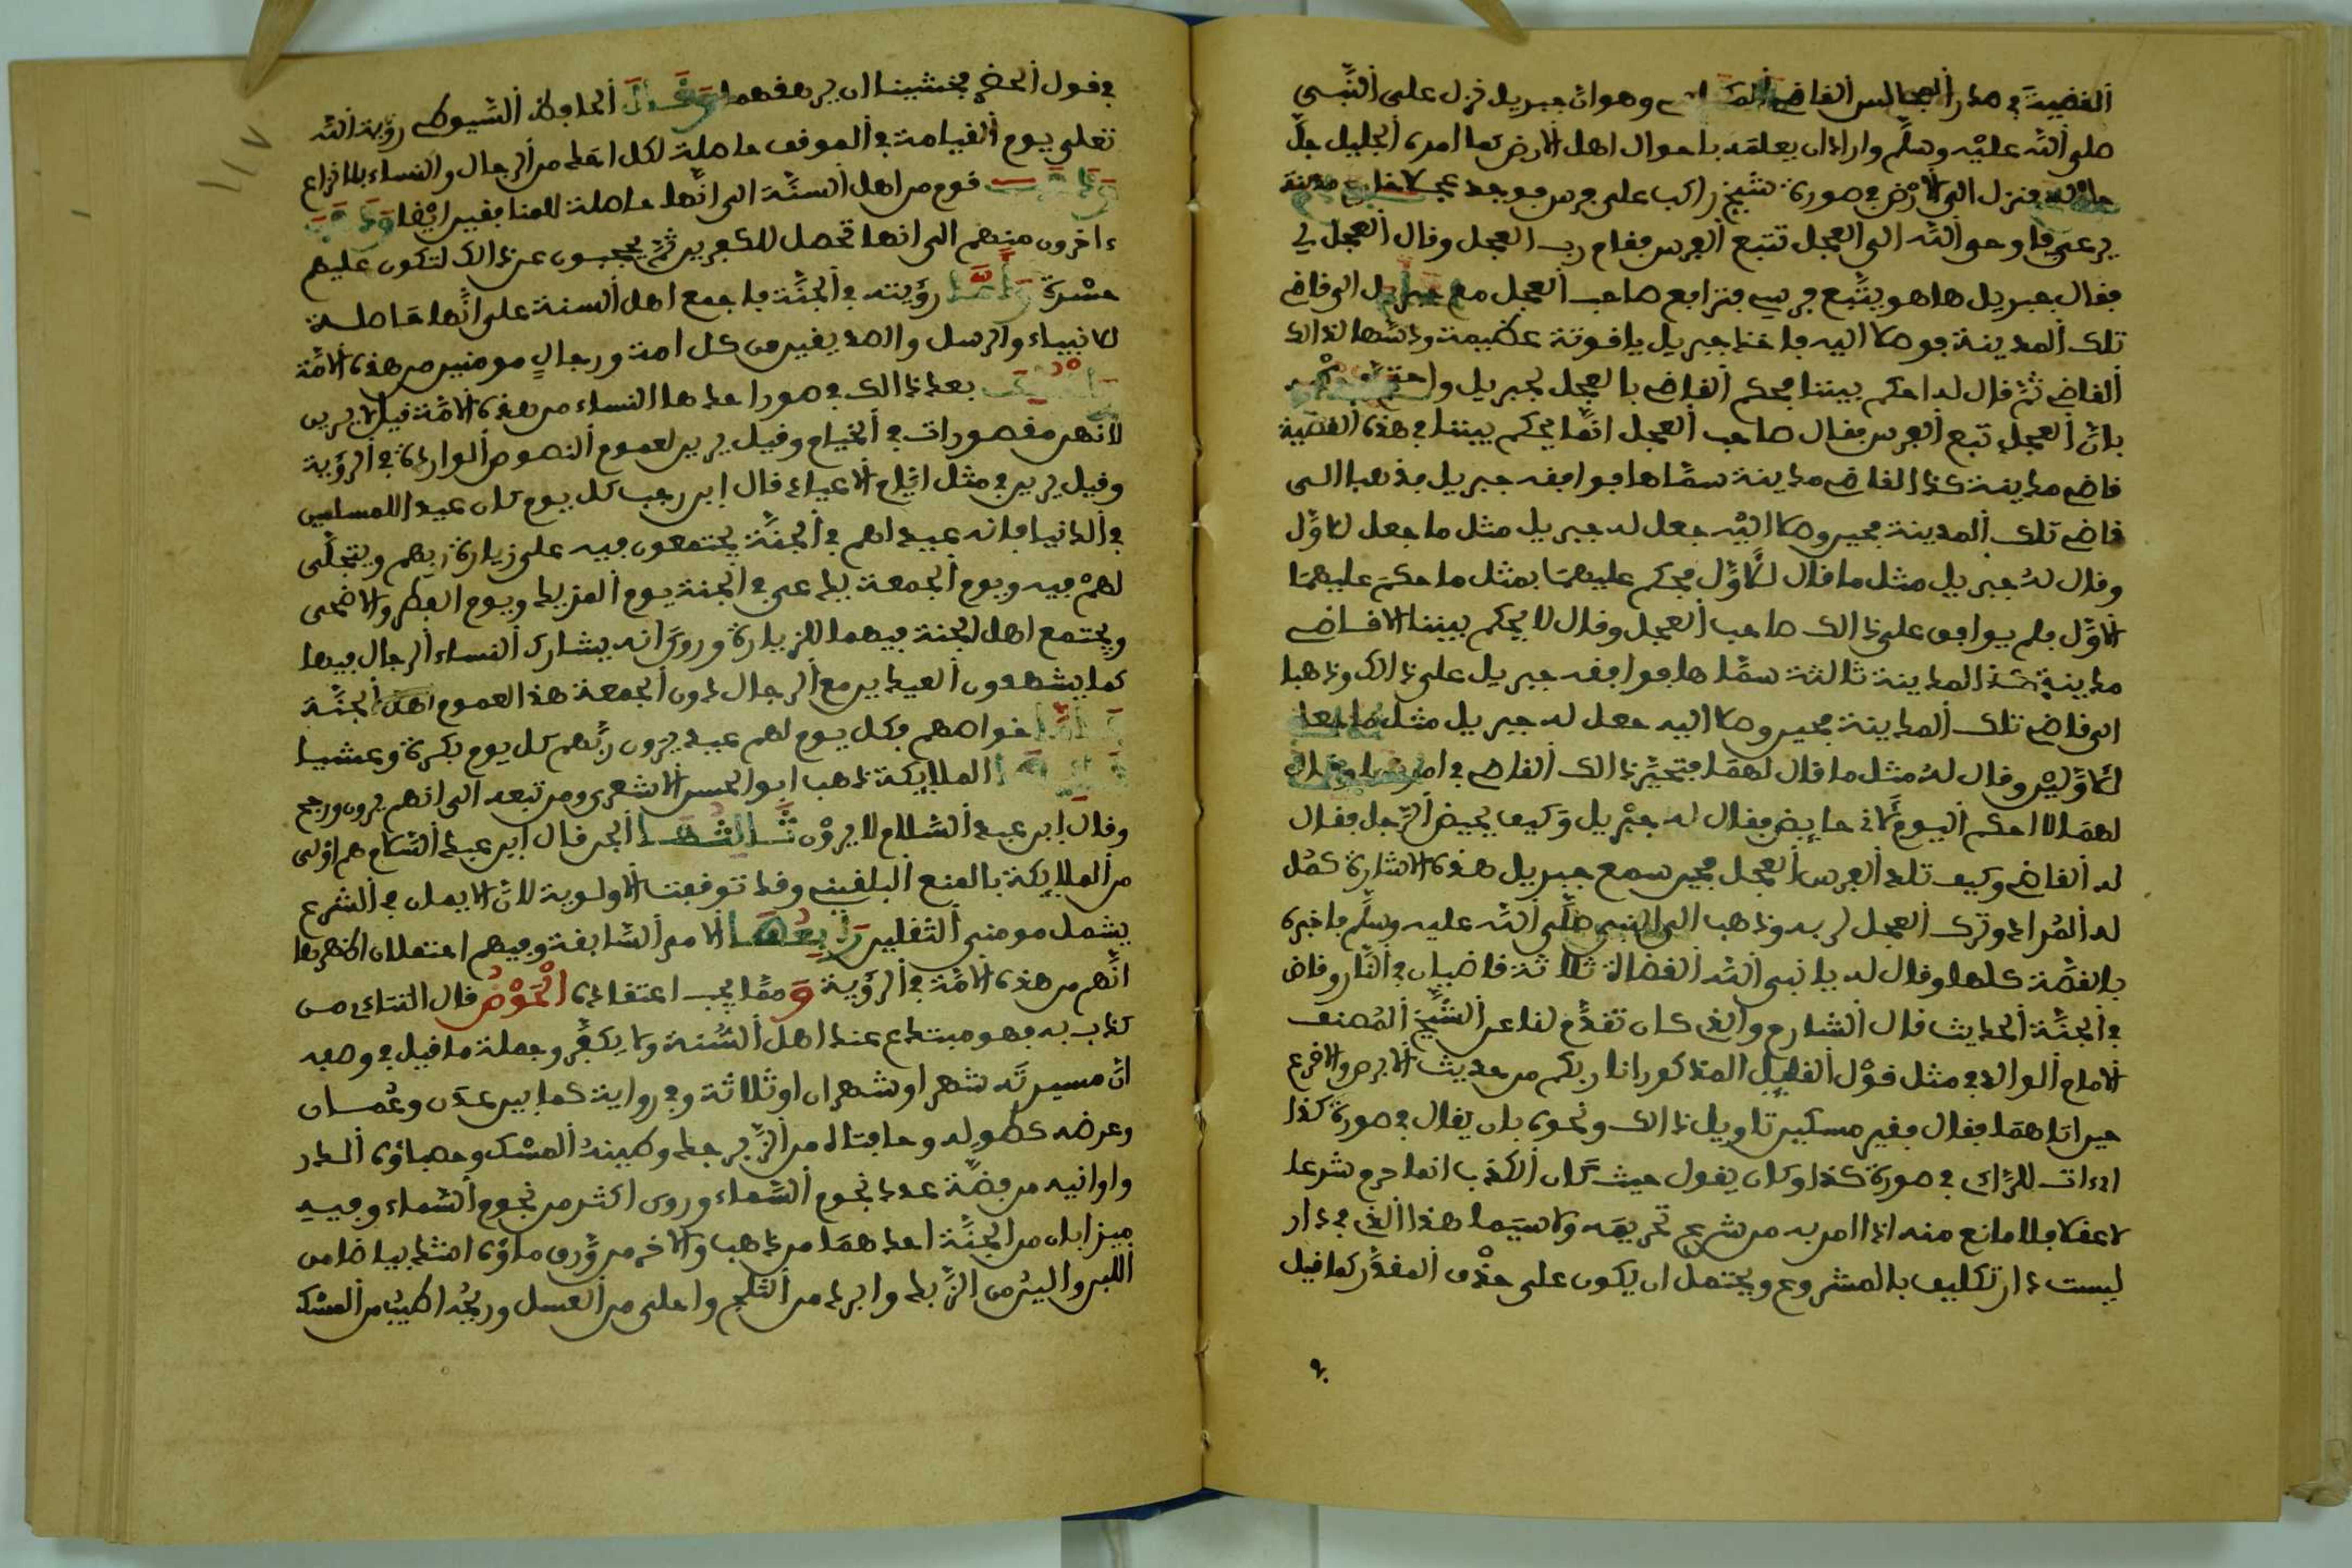 القضية في مدار المجالس القاضي وهو ان جبريل نزل على النبي
صلى الله عليه وسلم واراد ان يعلمه باحوال اهل الارض كما امره الجليل جل
جلاله فنزل الى الارض في صورة شيخ راكب على فرس فوجد عجلا مدينة
يرعى فاوحى الله الى العجل تتبع الفرس فقام رب العجل وقال العجل لي
فقال جبريل ها هو يتبع فرسي فترافع صاحب العجل مع جبريل الى قاضي
تلك المدينة فوصلا اليه فاخذ جبريل ياقوتة عظيمة ودسها لذالك
القاضي ثم قال له احكم بيننا فحكم القاضي بالعجل لجبريل واحتج
بان العجل تبع الفرس فقال صاحب العجل انما يحكم بيننا في هذه القضية
قاضي مدينة كذا لقاضي مدينة سماها فوافقه جبريل فذهبا الى
قاضي تلك المدينة فحين وصلا اليه جعل له جبريل مثل ما جعل للاول
وقال له جبريل مثل ما قال للاول فحكم عليهما بمثل ما حكم عليهما
الاول فلم يوافق على ذالك صاحب العجل وقال لا يحكم بيننا الا قاضي
مدينة كذا لمدينة ثالثة سماها فوافقه جبريل على ذالك وذهبا
الى قاضي تلك المدينة فحين وصلا اليه جعل له جبريل مثل ما جعل
للاولين وقال له مثل ما قال لهما فتحير ذالك القاضي في امرهما وقال
لهما لا احكم اليوم لاني حايض فقال له جبريل وكيف يحيض الرجل فقال
له القاضي وكيف تلد الفرس العجل فحين سمع جبريل هذه الاشارة كمل
له المراد وترك العجل لربه وذهب الى النبي صلى الله عليه وسلم فاخبره
بالقصة كلها وقال له يا نبي الله القضاة ثلاثة قاضيان في النار وقاض
في الجنة الحديث قال الشارح والذي كان تقدم لنا عن الشيخ المصنف
الامام الوالد في مثل قول القليل المذكور انا ربكم من حديث الابرص والاقرع
حين اتاهما فقال فقير مسكين تاويل ذالك ونحوه بان يقال في صورة كذا
اراءات للراى في صورة كذا وكان يقول حيث كان الكذب انما حرم شرعا
لا عقلا فلا مانع منه اذا امر به من شرع تحريمه ولا سيما هذا الذي في دار
ليست دار تكليف بالمشروع ويحتمل ان يكون على حذف المقدر كما قيل
في قول الخضر فخشينا ان يرهقهما وقال الحافظ السيوطي رؤية الله
تعلى يوم القيامة في الموقف حاصلة لكل احد من الرجال والنساء بلا نزاع
وذهب قوم من اهل السنة الى انها حاصلة للمنافقين ايضا وذهب
ءاخرون منهم الى انها تحصل للكافرين ثم يحجبون عن ذالك لتكون عليهم
حسرة واما رؤيته في الجنة فاجمع اهل السنة على انها حاصلة
للانبياء والرسل والصديقين من كل امة ورجال مومنين من هذه الامة
بعد ذالك في صور احدها النساء من هذه الامة قيل لا يرين
لانهن مقصورات في الخيام وقيل يرين لعموم النصوص الواردة في الرؤية
وقيل يرين في مثل ايام الاعياد قال ابن رجب كل يوم كان عيدا للمسلمين
في الدنيا فانه عيد لهم في الجنة يجتمعون فيه على زيارة ربهم ويتجلى
لهم فيه ويوم الجمعة يدعى في الجنة يوم المزيد ويوم الفطر والاضحى
ويجتمع اهل الجنة فيهما للزيارة وروي انه يشارك النساء الرجال فيها
كما يشهدون العيدين مع الرجال دون الجمعة هذا لعموم اهل الجنة
فاما خواصهم فكل يوم لهم عيد يزورون ربهم كل يوم بكرة وعشيا
الملايكة ذهب ابو الحسن الاشعري ومن تبعه الى انهم يرون ورجح
وقال ابن عبد السلام لا يرون ثالثها الجن قال ابن عبد السلام هم اولى
من الملايكة بالمنع البلقيني وقد توقفت الاولوية لان الايمان في الشرع
يشمل مومني الثقلين رابعها الامم السابقة وفيهم احتملان اظهرها
انهم من هذه الامة في الرؤية ومما يجب اعتقاده الحوض قال التتاءي من
كذب به فهو مبتدع عند اهل السنة ولا يكفر وجملة ما قيل في وصفه
ان مسيرته شهر او شهران او ثلاثة وفي رواية كما بين عدن وعمان
وعرضه كطوله وحافتاه من الزبرجد وطينه المسك وحصباؤه الدر
واوانيه من فضة عدد نجوم السماء وروي اكثر من نجوم السماء وفيه
ميزابان من الجنة احدهما من ذهب والاخر من ورق ماؤه اشد بياضا من
اللبن والين من الزبد وابرد من الثلج واحلى من العسل وريحه اطيب من المسك